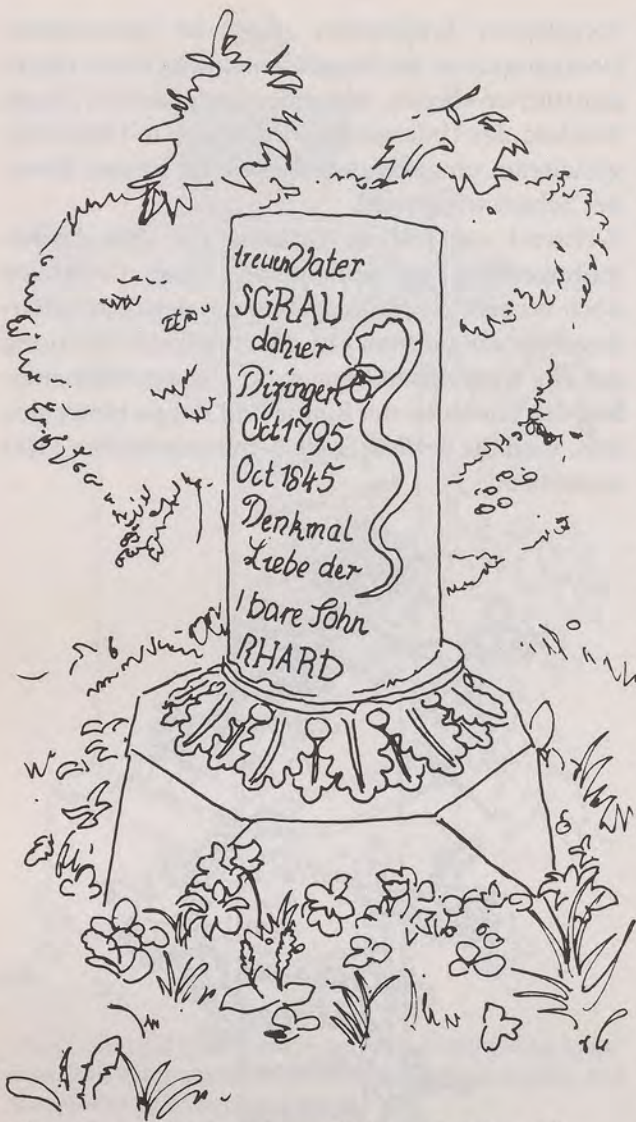 treuen Vater
SGRAU
dahier
Dizingen
Oct 1795
Oct 1845
Denkmal
Liebe der
bare Sohn
RHARD